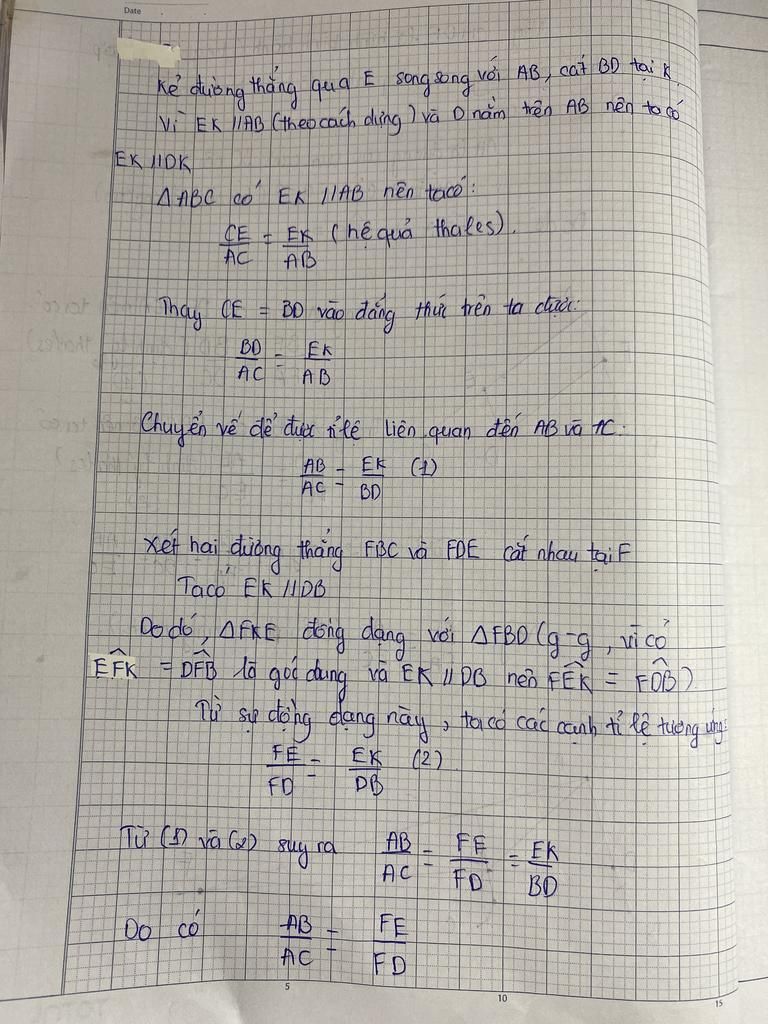 Date
Kẻ đường thẳng qua E song song với AB, cắt BD tại K
Vì EK //AB (theo cách dựng) và D nằm trên AB nên ta có
EK //DK
ΔABC có EK //AB nên ta có:
CE/AC = EK/AB (hệ quả thales).
Thay CE = BD vào đẳng thức trên ta được:
BD/AC = EK/AB
Chuyển vế để được tỉ lệ liên quan đến AB và AC:
AB/AC = EK/BD (1)
Xét hai đường thẳng FBC và FDE cắt nhau tại F
Ta có EK //DB
Do đó, ΔFKE đồng dạng với ΔFBD (g-g, vì có
EF̂K = DF̂B là góc dung và EK //DB nên FÊK = FD̂B)
Từ sự đồng dạng này, ta có các cạnh tỉ lệ tương ứng:
FE/FD = EK/DB (2)
Từ (1) và (2) suy ra AB/AC = FE/FD = EK/BD
Do có AB/AC = FE/FD
5 10 15